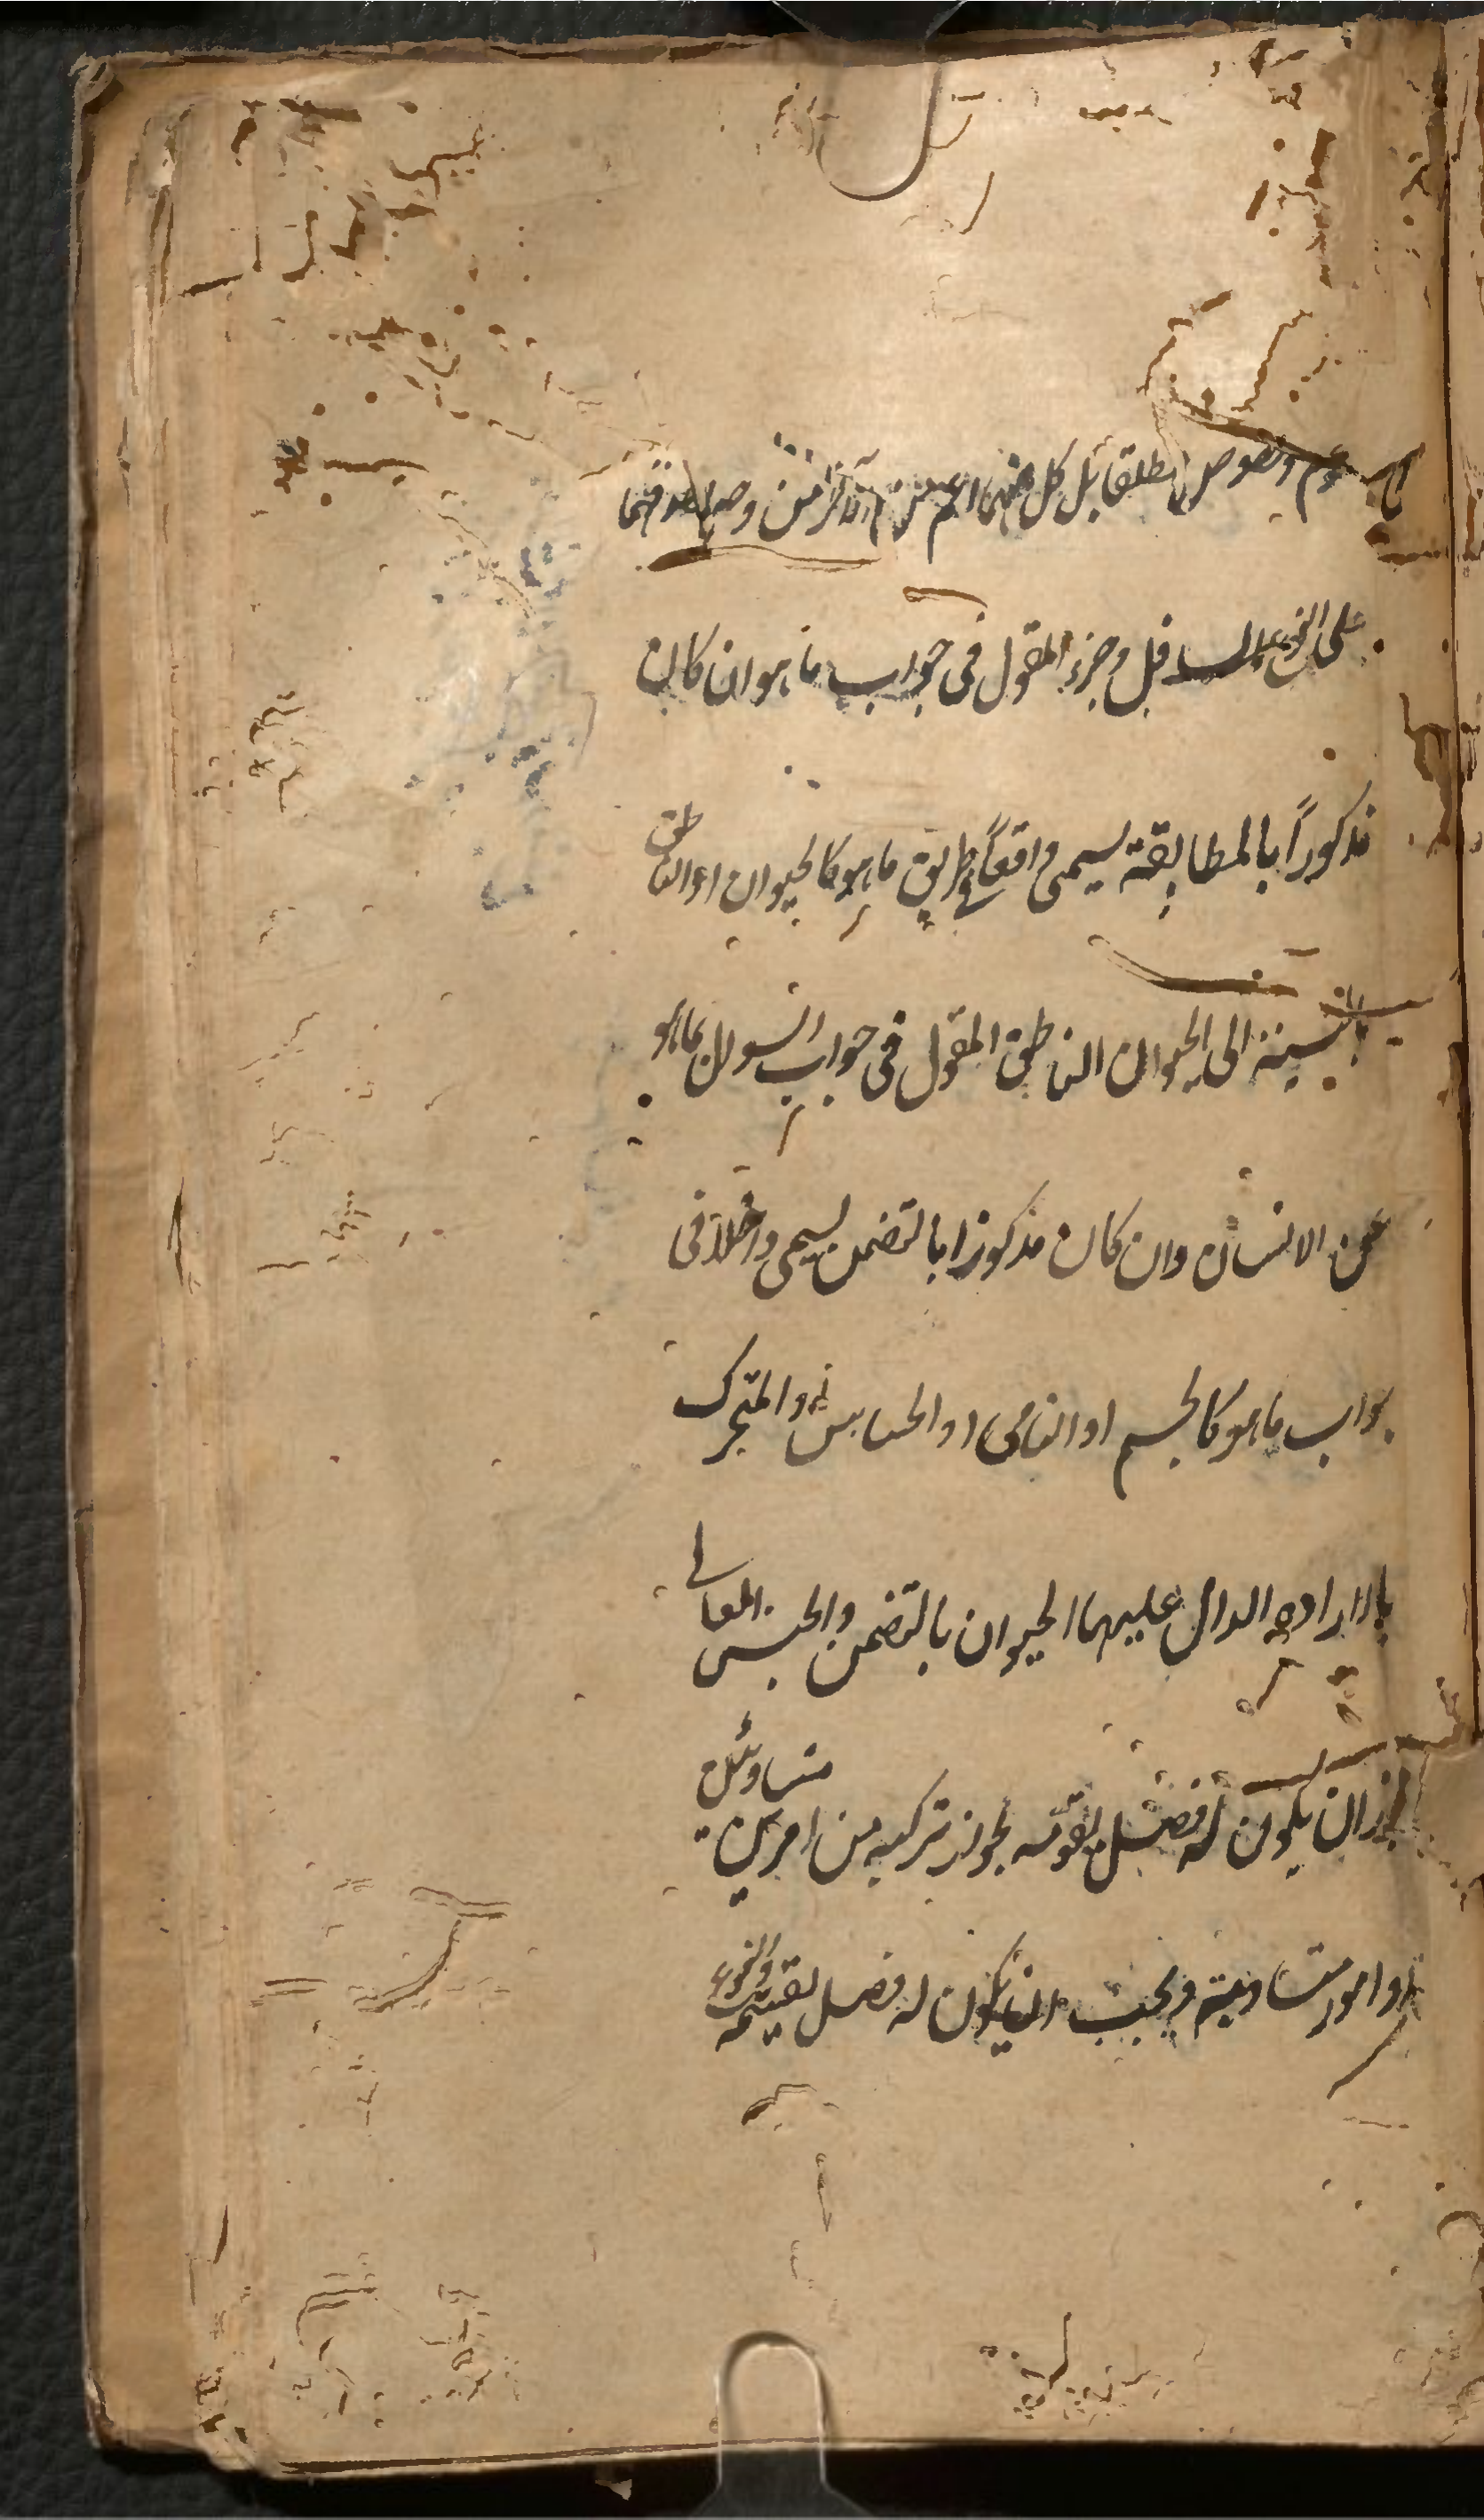 عموم وخصوص مطلقا بل كل منهما اعم من الآخر من وجه لصدقهما
على النوع السافل وجزء المقول فى جواب ما هو ان كان
مذكوراً بالمطابقة يسمى واقعاً فى طريق ما هو كالحيوان او الناطق
بالنسبة الى الحيوان الناطق المقول فى جواب السوال بما هو
عن الانسان وان كان مذكورا بالتضمن يسمى داخلا فى
جواب ما هو كالجسم او النامى او الحساس او المتحرك
بالارادة الدال عليها الحيوان بالتضمن والجنس العالى
جاز ان يكون له فصل يقومه لجواز تركبه من امرين متساويين
او امور متساوية ويجب ان يكون له فصل يقسمه والنوع